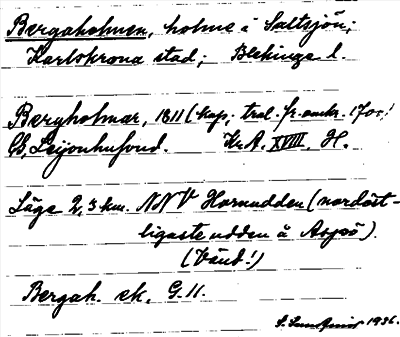 Bergaholmen, holme i Saltsjön;
Karlskrona stad; Blekinge l.
Bergholmar, 1811 (kop; trol. fr. omkr. 1700!
Gb, Leijonhufvud. Kr.A. XVIII. H.
Läge 2,3 km. NNV Hornudden (nordöst-
ligaste udden å Aspö).
(Vänd!)
Bergah. ek. G. 11.
1936.